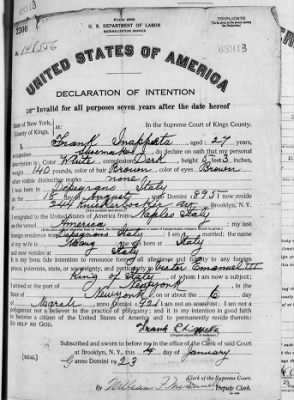 Form 2202
TRIPLICATE
U. S. DEPARTMENT OF LABOR
NATURALIZATION SERVICE
No. 148556
88913
UNITED STATES OF AMERICA
DECLARATION OF INTENTION
Invalid for all purposes seven years after the date hereof
State of New York,
County of Kings.
In the Supreme Court of Kings County.
I, Frank, aged 27 years,
occupation Shoemaker, do declare on oath that my personal
description is: Color White, complexion Dark, height 5 feet 3 inches,
weight 140 pounds, color of hair Brown, color of eyes Brown
other visible distinctive marks none
I was born in Italy
on the 15 day of August, anno Domini 1895; I now reside
at Knickerbocker Ave, Brooklyn, N. Y.
I emigrated to the United States of America from Naples Italy
on the vessel America; my last
foreign residence was Italy; I am married; the name
of my wife is; she was born at Italy
and now resides at Italy
It is my bona fide intention to renounce forever all allegiance and fidelity to any foreign
prince, potentate, state, or sovereignty, and particularly to Victor Emanuel III
King of Italy, of whom I am now a subject;
I arrived at the port of Newyork, in the
State of Newyork, on or about the 6 day
of March, anno Domini 1921; I am not an anarchist; I am not a
polygamist nor a believer in the practice of polygamy; and it is my intention in good faith
to become a citizen of the United States of America and to permanently reside therein:
SO HELP ME GOD.
Frank
Subscribed and sworn to before me in the office of the Clerk of said Court
[SEAL] at Brooklyn, N. Y., this 4 day of January
anno Domini 1923
Clerk of the Supreme Court.
By William F. Deputy Clerk.